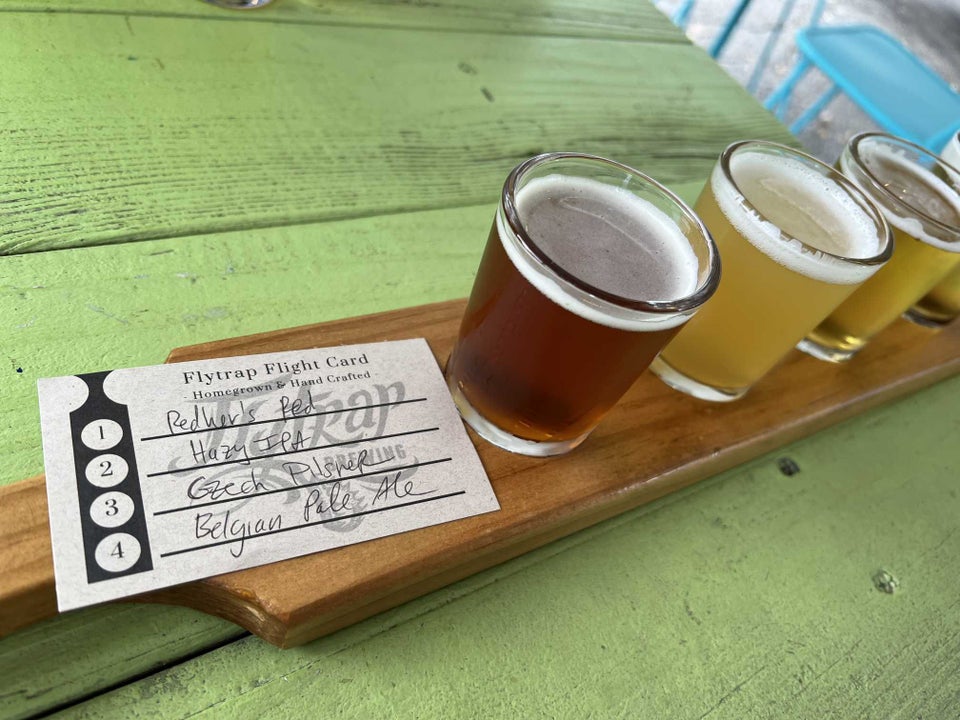 Flytrap Flight Card
- Homegrown & Hand Crafted -
Flytrap
BREWING
1 Redher's Red
2 Hazy IPA
3 Czech Pilsner
4 Belgian Pale Ale